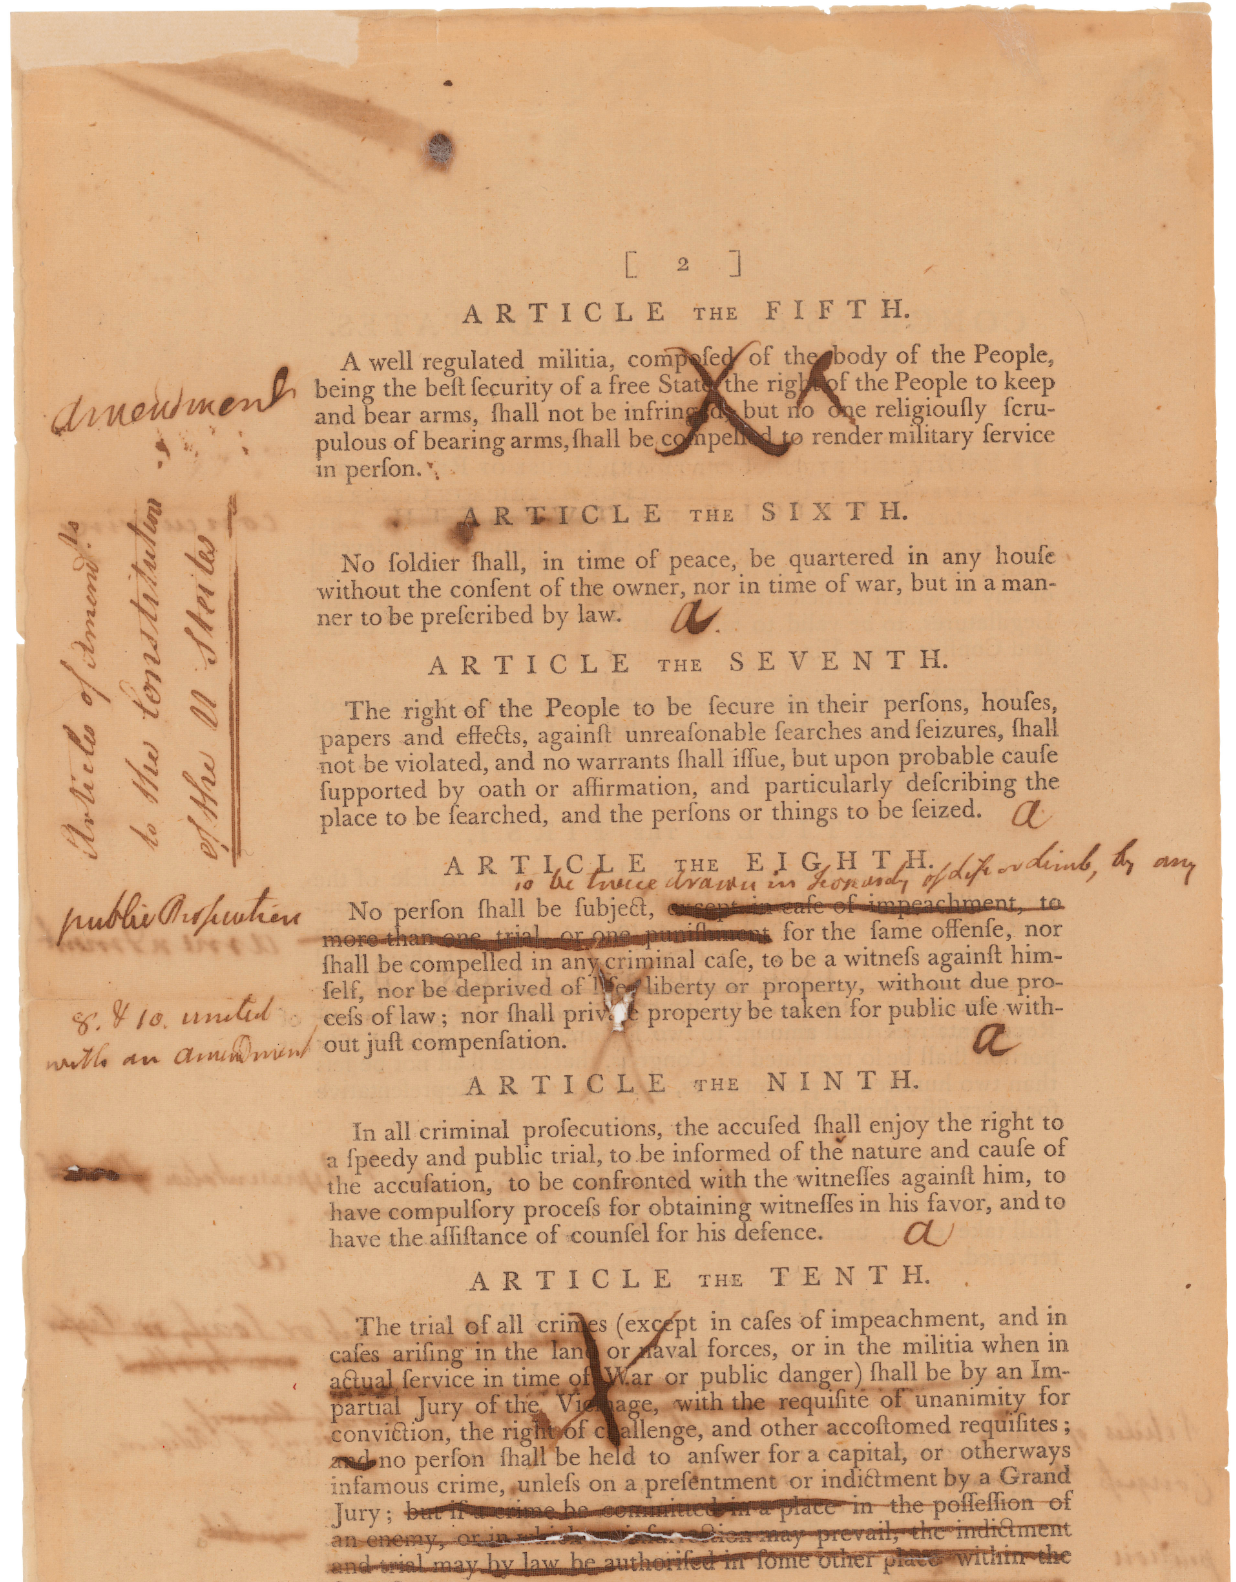 [ 2 ]
ARTICLE THE FIFTH.
A well regulated militia, compoſed of the body of the People,
being the beſt ſecurity of a free State, the right of the People to keep
and bear arms, ſhall not be infringed, but no one religiouſly ſcru-
pulous of bearing arms, ſhall be compelled to render military ſervice
in perſon.
amendment
ARTICLE THE SIXTH.
No ſoldier ſhall, in time of peace, be quartered in any houſe
without the conſent of the owner, nor in time of war, but in a man-
ner to be preſcribed by law. a
Articles of Amend.ts
to the Constitution
of the U States
ARTICLE THE SEVENTH.
The right of the People to be ſecure in their perſons, houſes,
papers and effects, againſt unreaſonable ſearches and ſeizures, ſhall
not be violated, and no warrants ſhall iſſue, but upon probable cauſe
ſupported by oath or affirmation, and particularly deſcribing the
place to be ſearched, and the perſons or things to be ſeized. a
ARTICLE THE EIGHTH.
to be twice in of life or limb, by any
public Proſecution
No perſon ſhall be ſubject, except in caſe of impeachment, to
more than one trial, or one puniſhment for the ſame offenſe, nor
ſhall be compelled in any criminal caſe, to be a witneſs againſt him-
ſelf, nor be deprived of life, liberty or property, without due pro-
ceſs of law; nor ſhall private property be taken for public uſe with-
out juſt compenſation. a
8. & 10. united
with an amendment
ARTICLE THE NINTH.
In all criminal proſecutions, the accuſed ſhall enjoy the right to
a ſpeedy and public trial, to be informed of the nature and cauſe of
the accuſation, to be confronted with the witneſſes againſt him, to
have compulſory proceſs for obtaining witneſſes in his favor, and to
have the aſſiſtance of counſel for his defence. a
ARTICLE THE TENTH.
The trial of all crimes (except in caſes of impeachment, and in
caſes ariſing in the land or naval forces, or in the militia when in
actual ſervice in time of War or public danger) ſhall be by an Im-
partial Jury of the Vicinage, with the requiſite of unanimity for
conviction, the right of challenge, and other accoſtomed requiſites;
and no perſon ſhall be held to anſwer for a capital, or otherways
infamous crime, unleſs on a preſentment or indictment by a Grand
Jury; but if a crime be committed in a place in the poſſeſſion of
an enemy, or in which an inſurrection may prevail, the indictment
and trial may by law be authoriſed in ſome other place within the